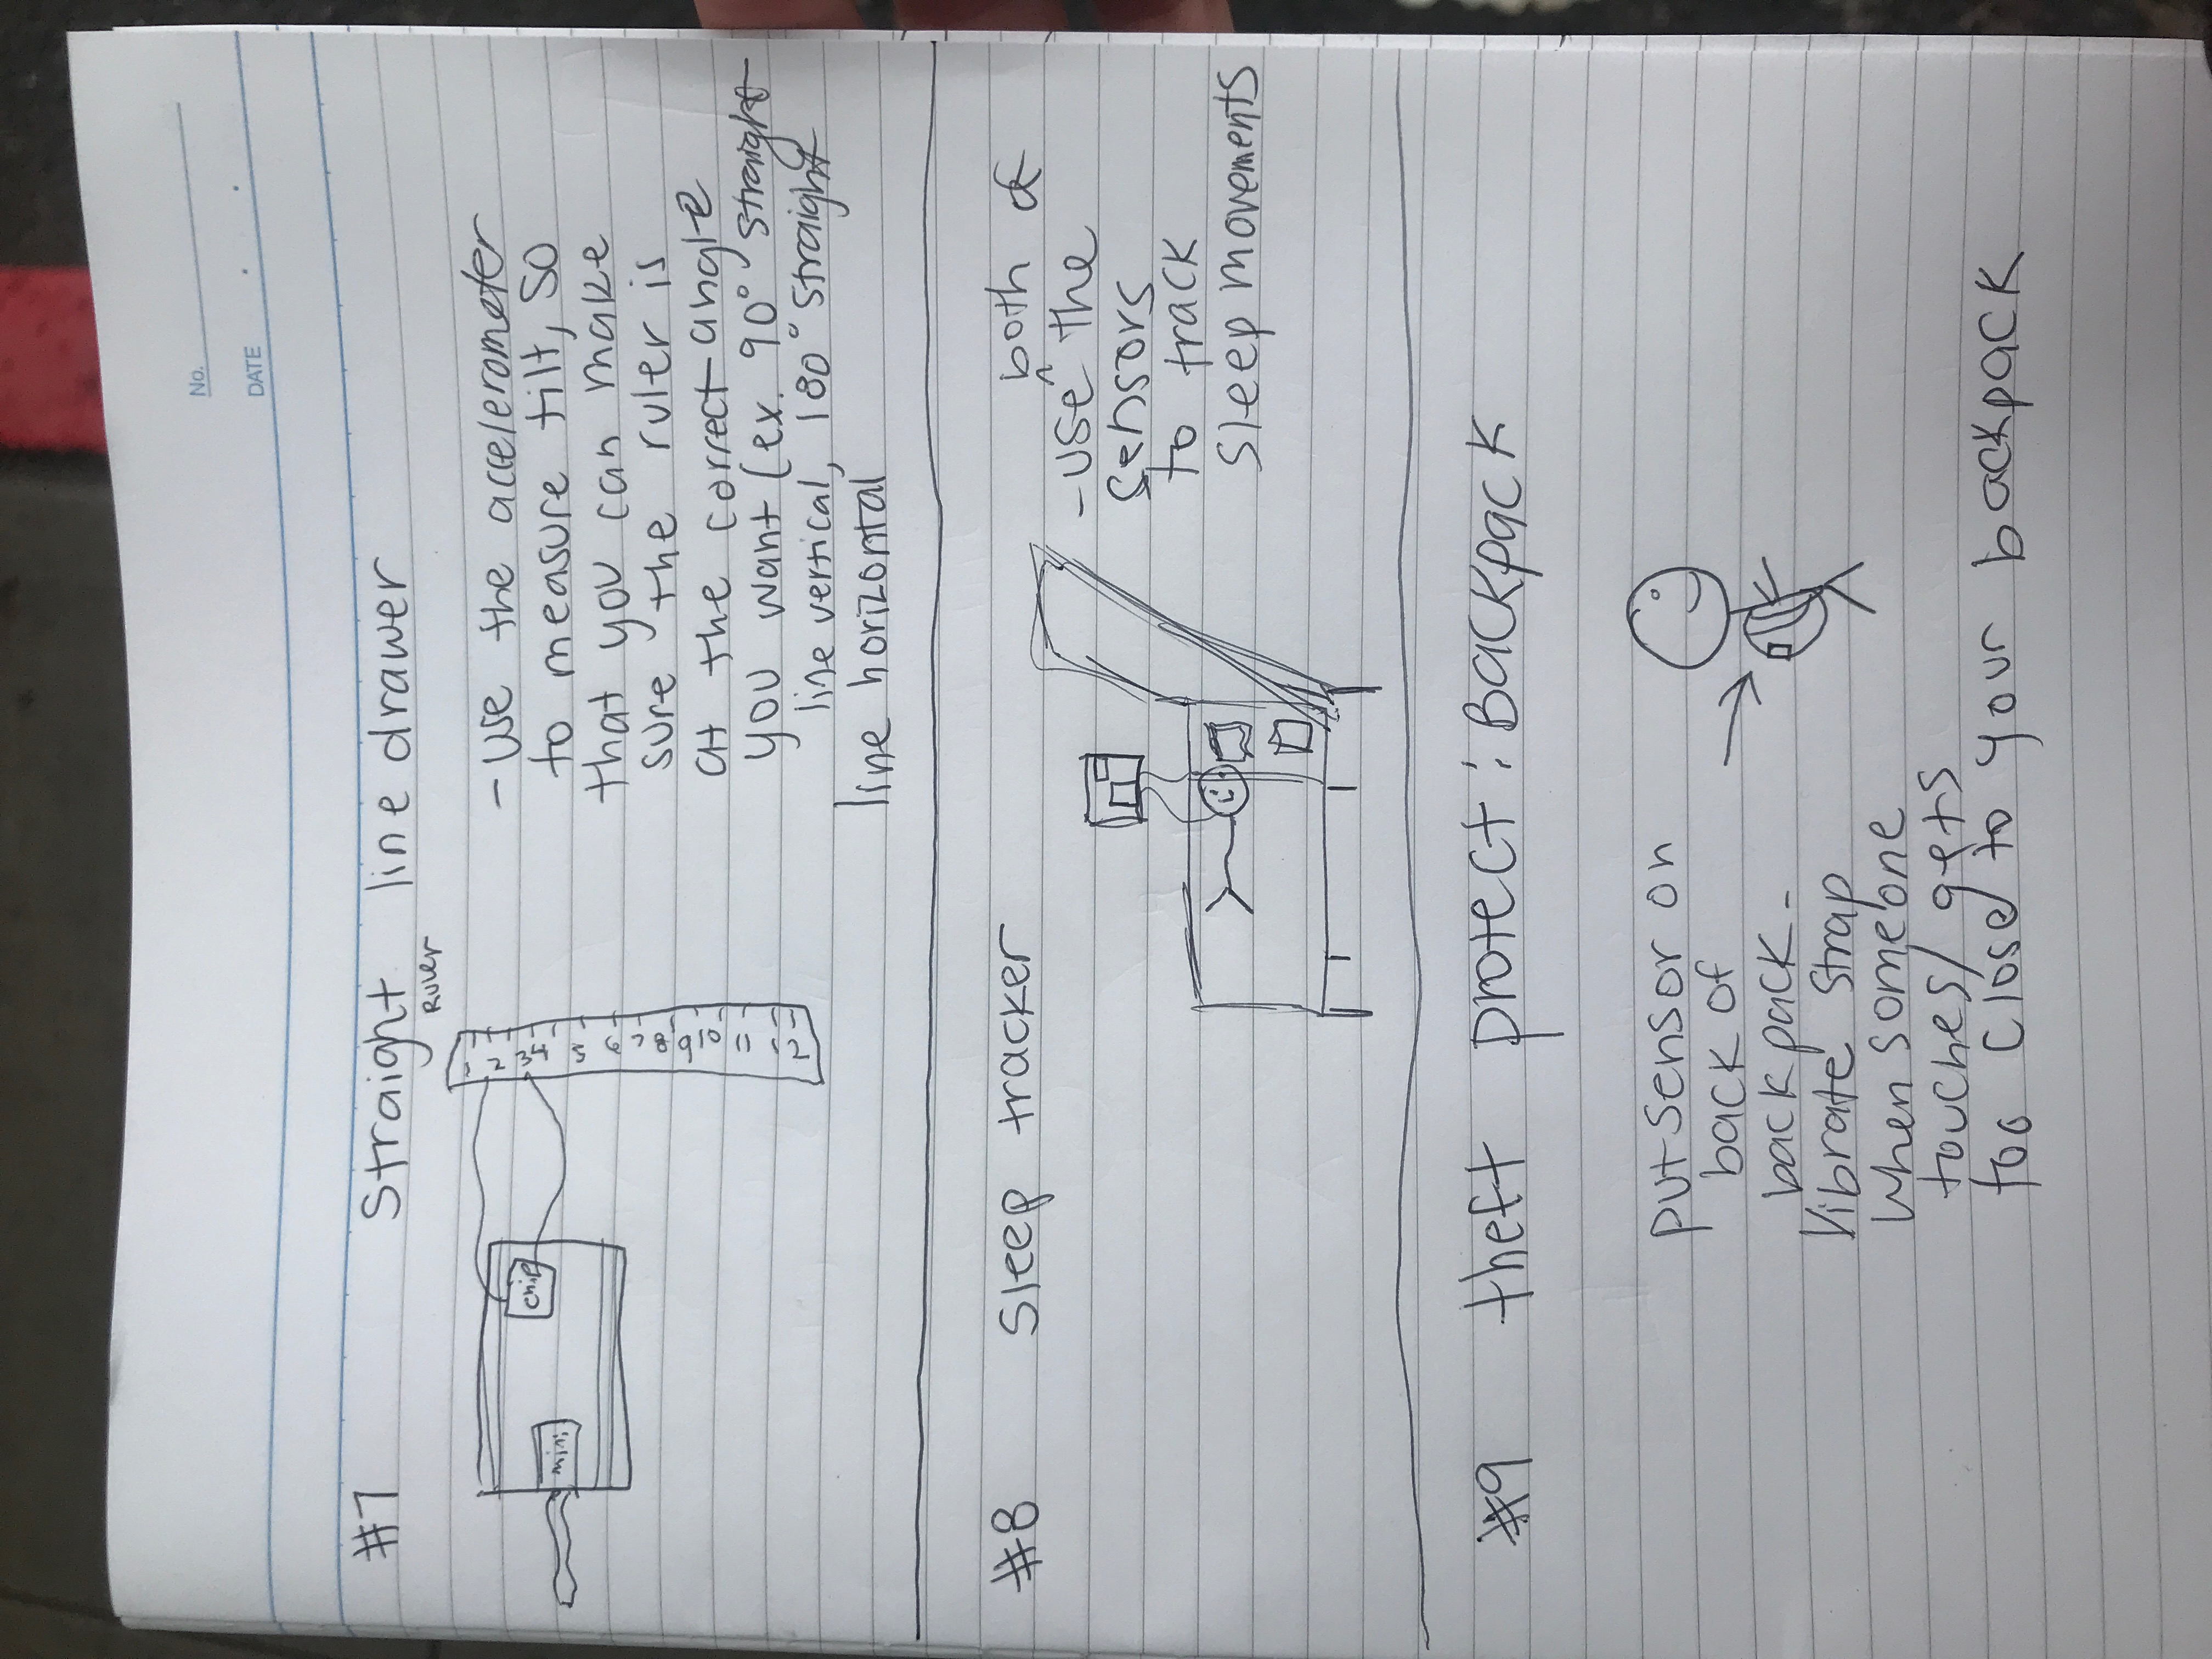 No.
DATE
#7 Straight line drawer
Ruler
chip
mini
1 2 3 4 5 6 7 8 9 10 11 12
- use the accelerometer
to measure tilt, so
that you can make
sure the ruler is
at the correct angle
you want (ex. 90° straight
line vertical, 180° straight
line horizontal
#8 Sleep tracker
both of
- use ^ the
sensors
to track
sleep movements
#9 theft protect: Backpack
put sensor on
back of
backpack -
Vibrate strap
when someone
touches/ gets
too close to your backpack